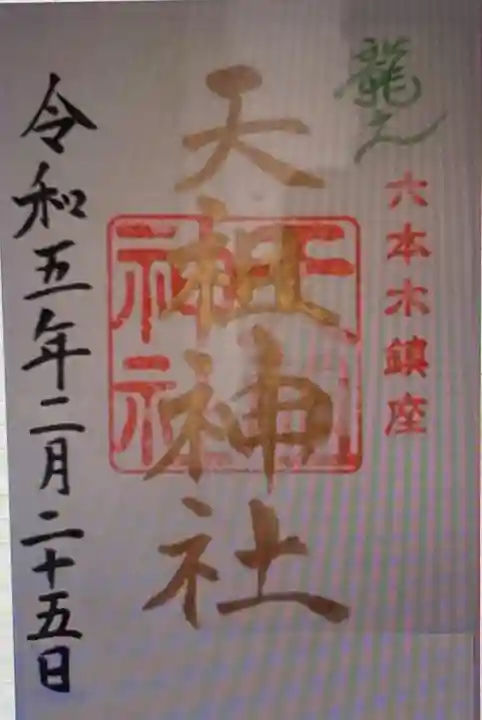 龍之
六本木鎮座
天祖神社
令和五年二月二十五日